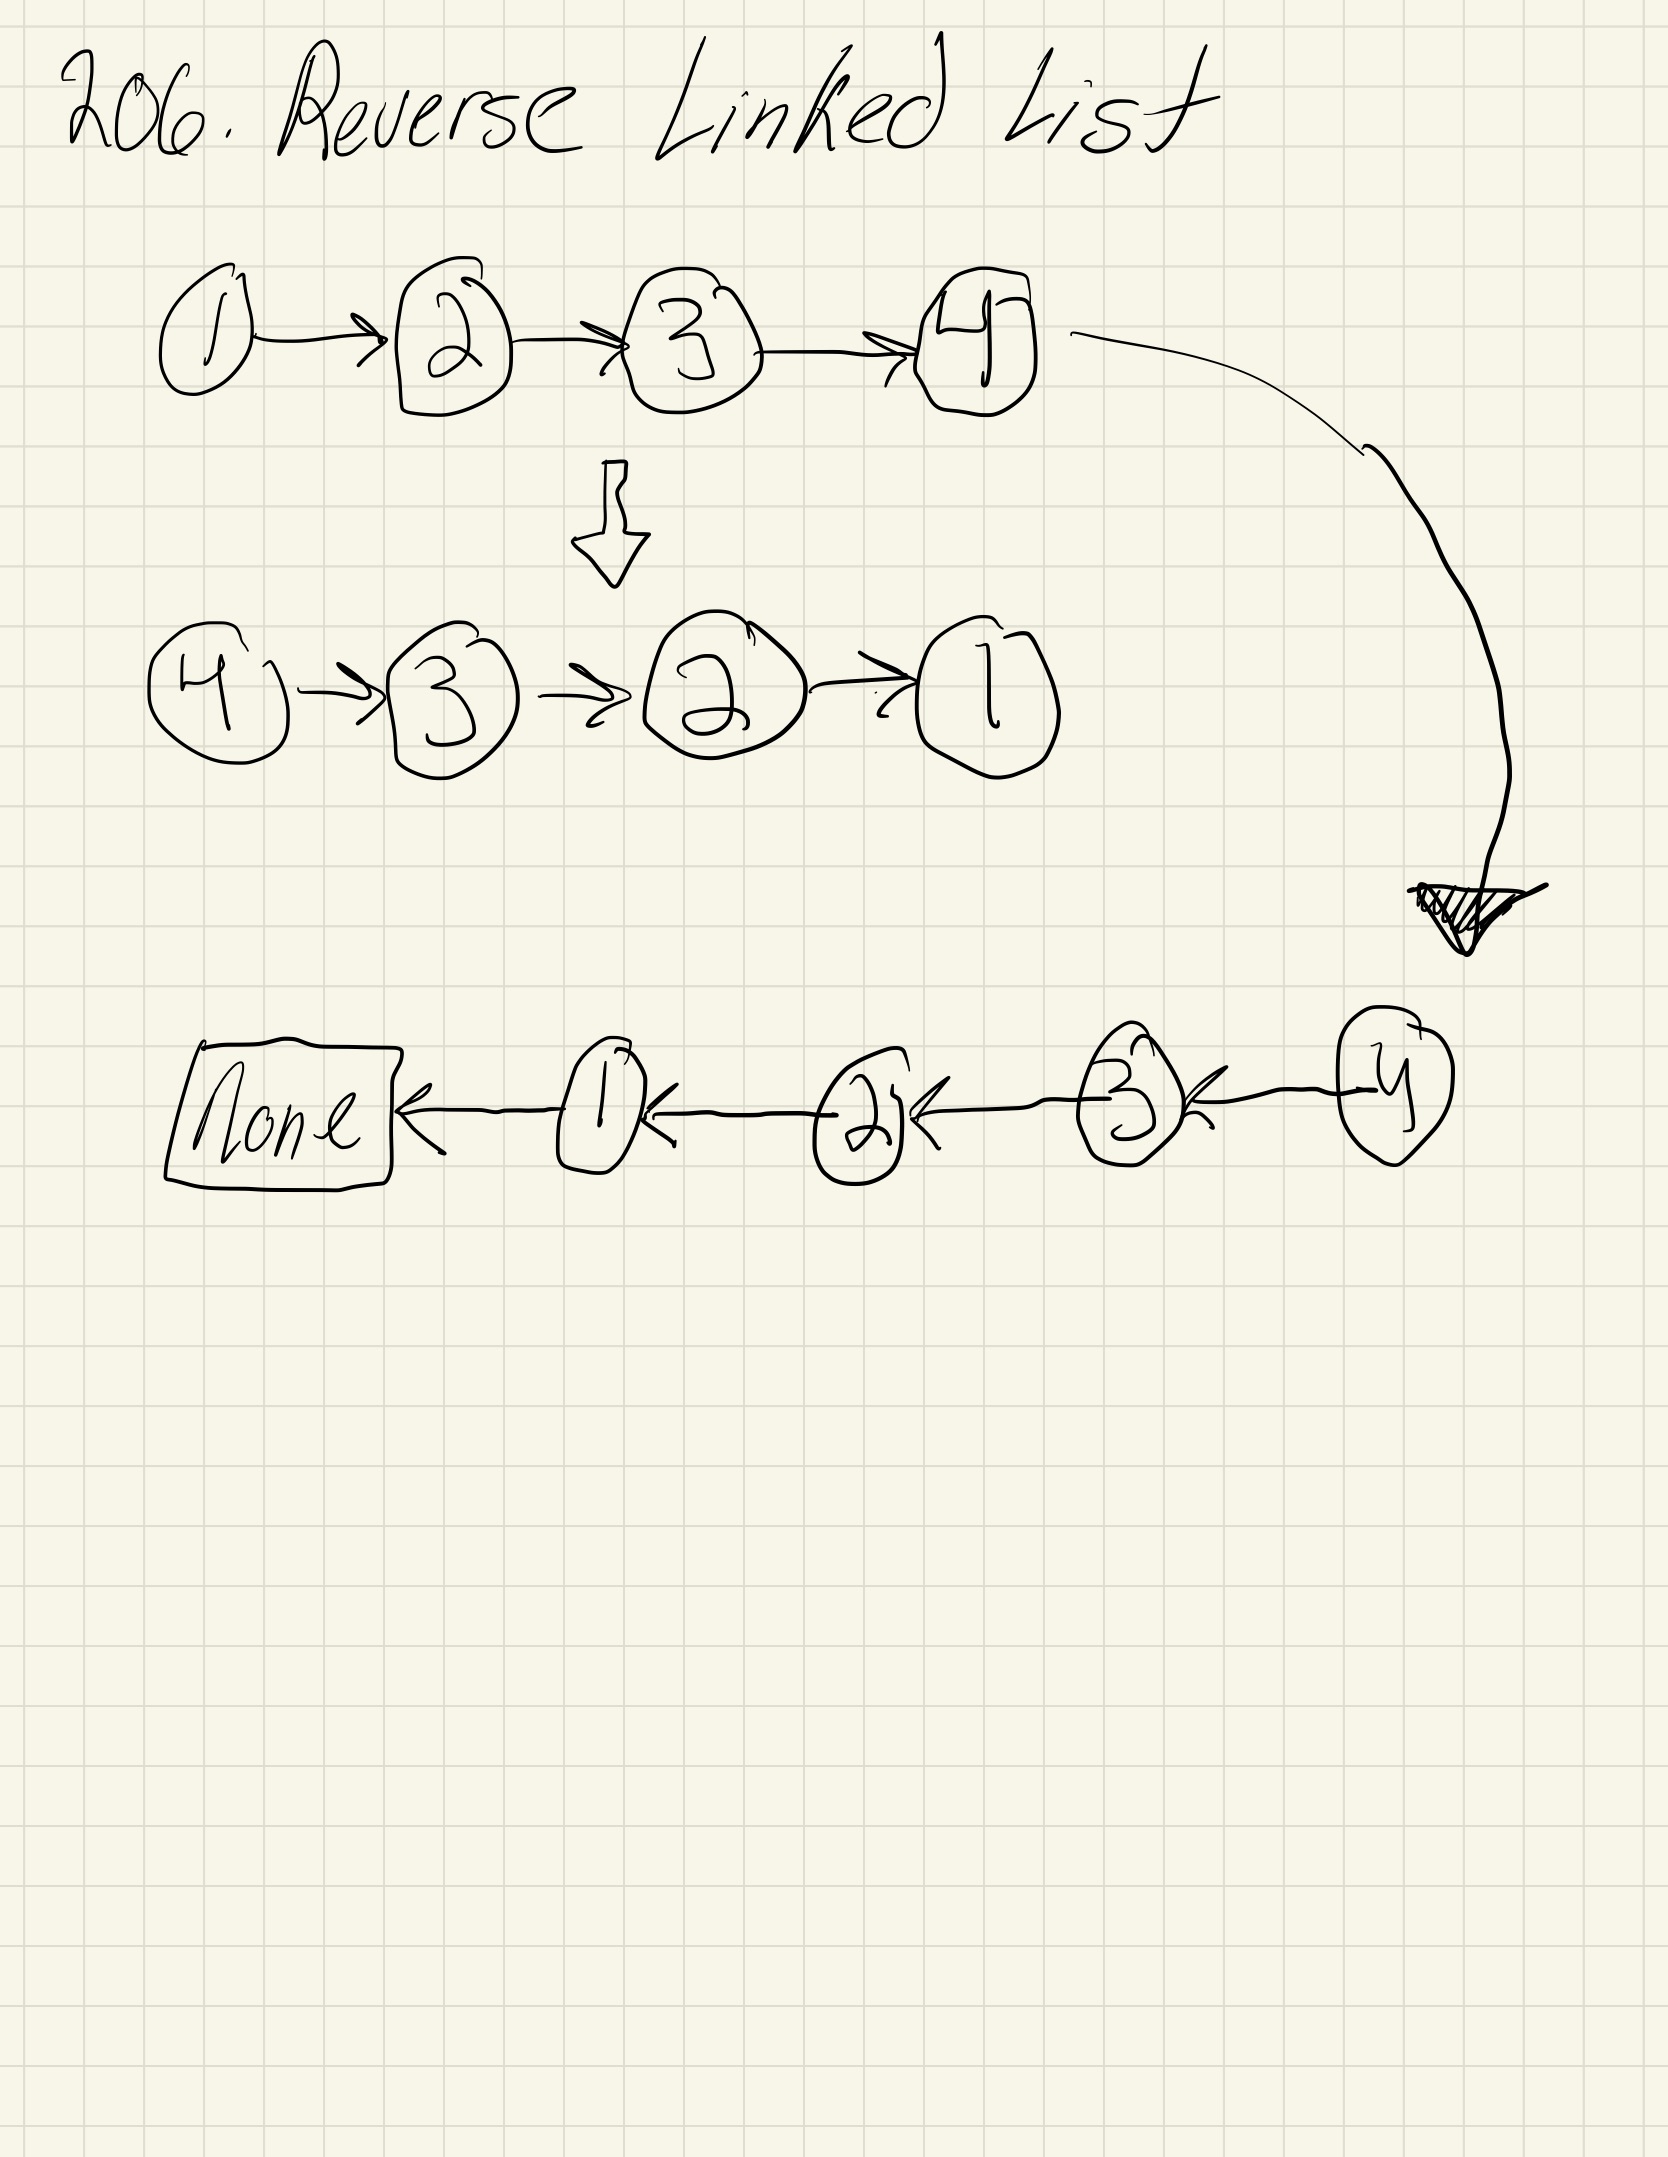 206. Reverse Linked List
1 2 3 4
4 3 2 1
None 1 2 3 4